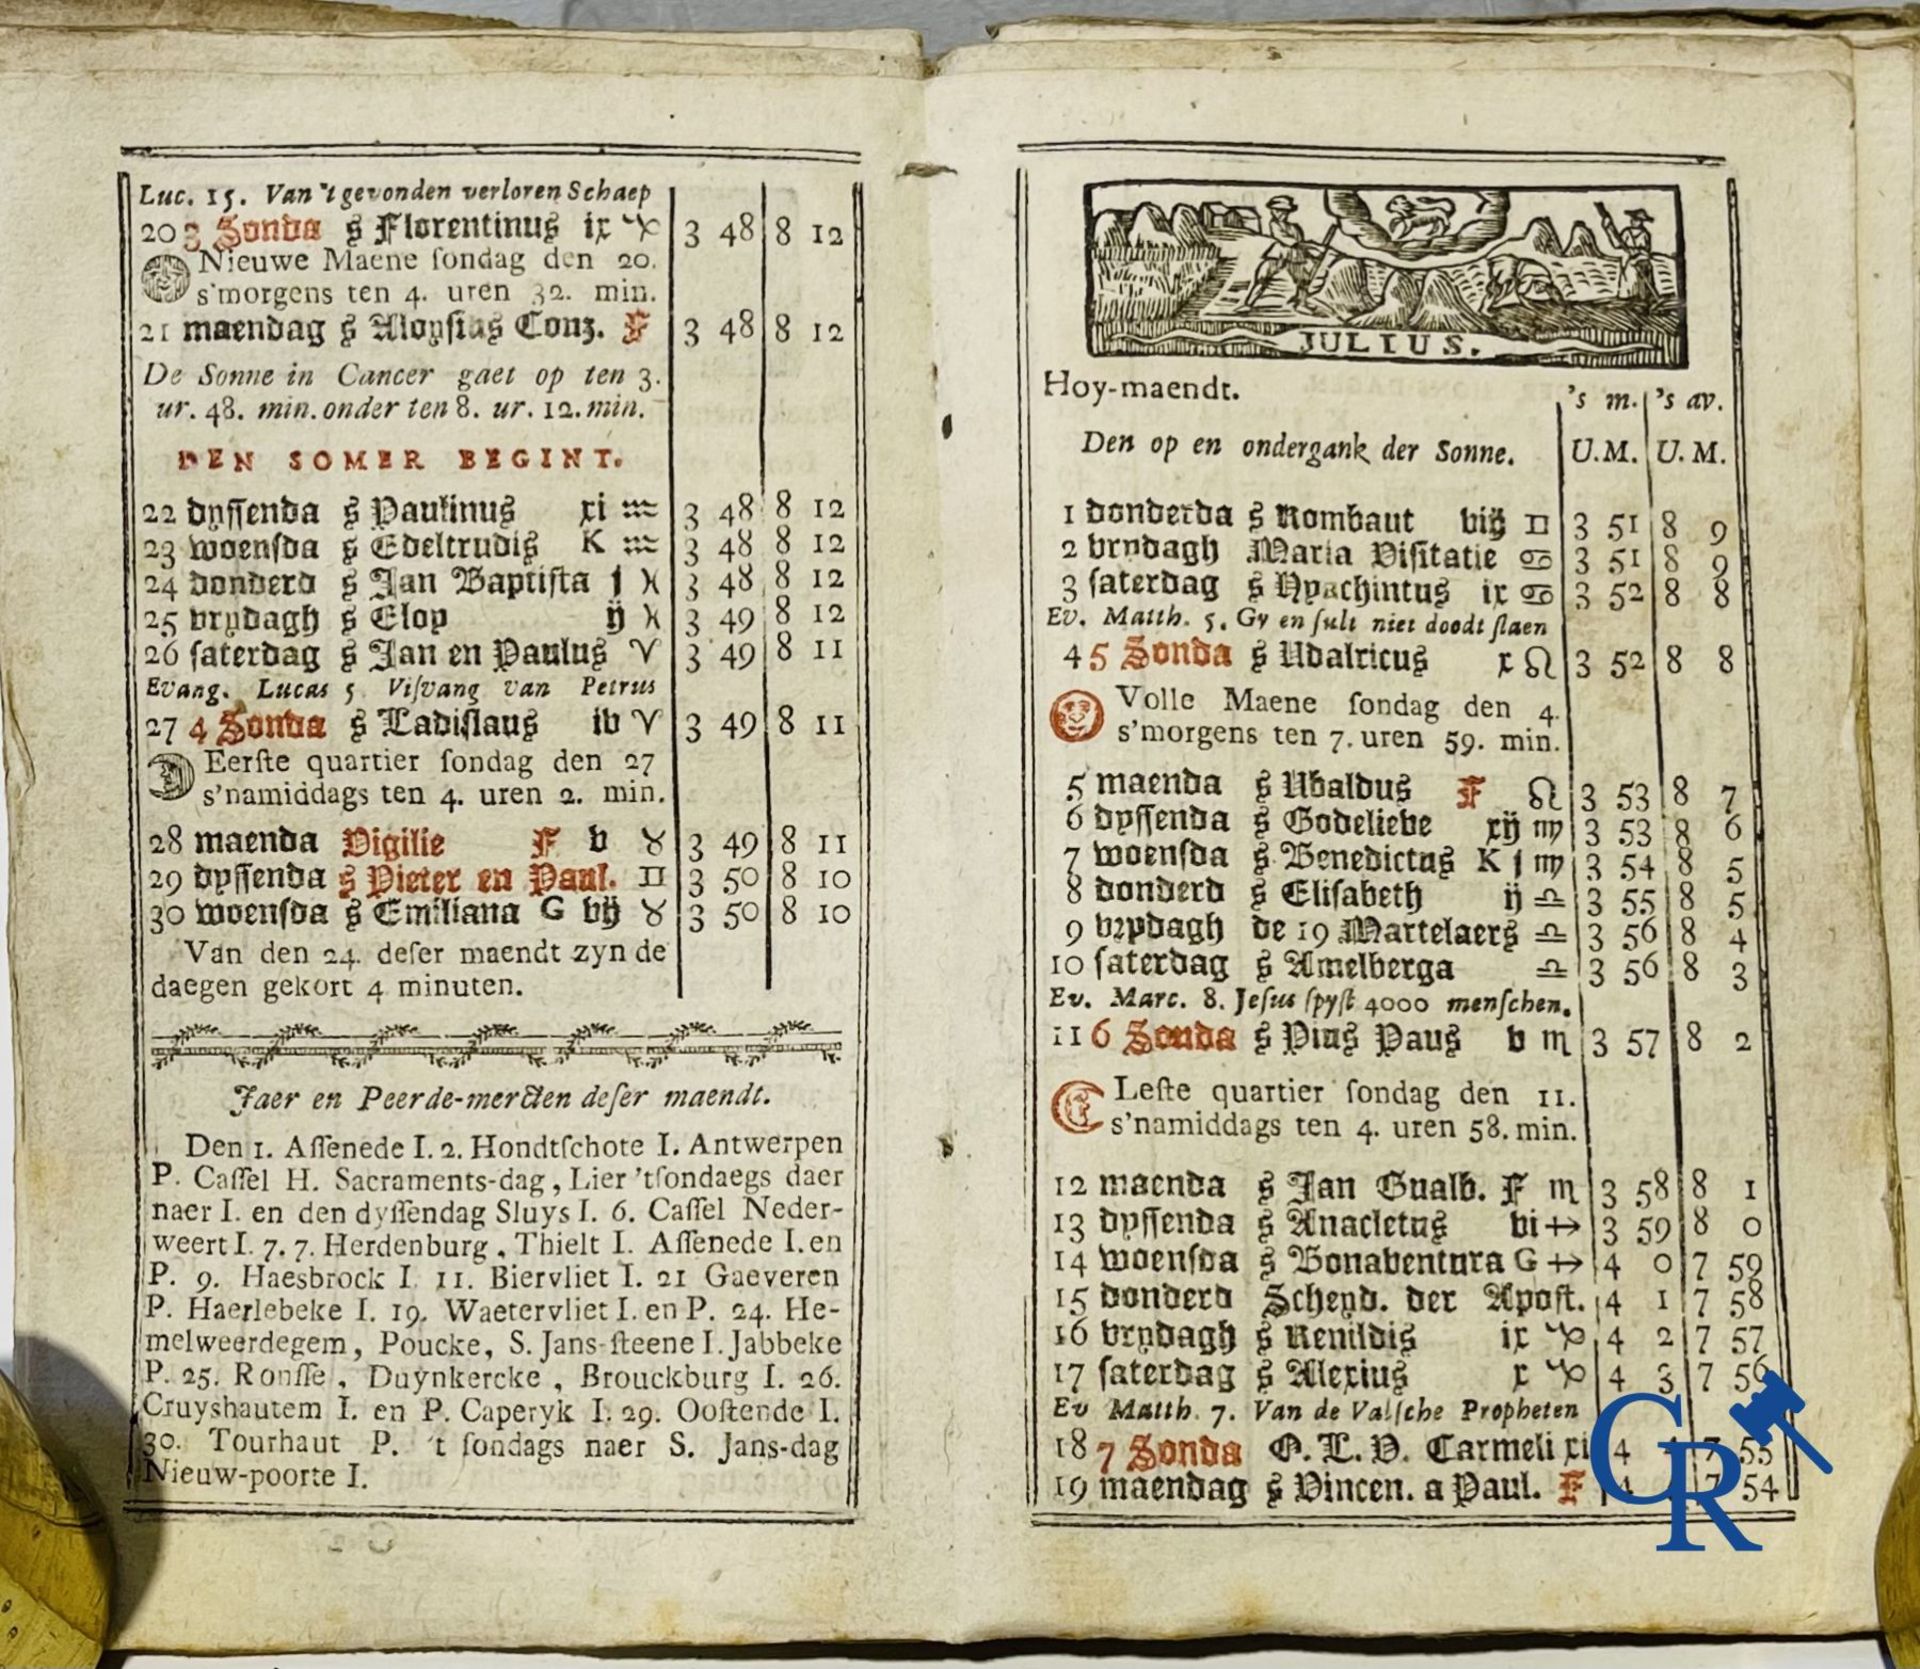 Luc. 15. Van 't gevonden verloren Schaep
20 3 Sonda s Florentinus ix ♑ 3 48 8 12
Nieuwe Maene sondag den 20.
s'morgens ten 4. uren 32. min.
21 maendag s Aloysius Conz. F 3 48 8 12
De Sonne in Cancer gaet op ten 3.
ur. 48. min. onder ten 8. ur. 12. min.
DEN SOMER BEGINT.
22 dyssenda s Paulinus xi ♒ 3 48 8 12
23 woensda s Edeltrudis K ♒ 3 48 8 12
24 donderd s Jan Baptista j ♓ 3 48 8 12
25 vrydagh s Eloy ij ♓ 3 49 8 12
26 saterdag s Jan en Paulus ♈ 3 49 8 11
Evang. Lucas 5 Visvang van Petrus
27 4 Sonda s Ladislaus iv ♈ 3 49 8 11
Eerste quartier sondag den 27
s'namiddags ten 4. uren 2. min.
28 maenda Vigilie F v ♉ 3 49 8 11
29 dyssenda s Pieter en Paul. ♊ 3 50 8 10
30 woensda s Emiliana G vij ♉ 3 50 8 10
Van den 24. deser maendt zyn de
daegen gekort 4 minuten.
Jaer en Peerde-mercten deser maendt.
Den 1. Assenede I. 2. Hondtschote I. Antwerpen
P. Cassel H. Sacraments-dag, Lier 'tsondaegs daer
naer I. en den dyssendag Sluys I. 6. Cassel Neder-
weert I. 7. 7. Herdenburg, Thielt I. Assenede I. en
P. 9. Haesbrock I 11. Biervliet I. 21 Gaeveren
P. Haerlebeke I. 19. Waetervliet I. en P. 24. He-
melweerdegem, Poucke, S. Jans-steene I. Jabbeke
P. 25. Ronsse, Duynkercke, Brouckburg I. 26.
Cruyshautem I. en P. Caperyk I. 29. Oostende I.
30. Tourhaut P. 't sondags naer S. Jans-dag
Nieuw-poorte I.
JULIUS.
Hoy-maendt. 's m. 's av.
Den op en ondergank der Sonne. U. M. U. M.
1 donderda s Rombaut viij ♊ 3 51 8 9
2 vrydagh Maria Visitatie ♋ 3 51 8 9
3 saterdag s Hyachintus ix ♋ 3 52 8 8
Ev. Matth. 5. Gy en sult niet doodt slaen
4 5 Sonda s Udalricus x ♌ 3 52 8 8
Volle Maene sondag den 4.
s'morgens ten 7. uren 59. min.
5 maenda s Ubaldus F ♌ 3 53 8 7
6 dyssenda s Godelieve xij ♍ 3 53 8 6
7 woensda s Benedictus K j ♍ 3 54 8 5
8 donderd s Elisabeth ij ♎ 3 55 8 5
9 vrydagh de 19 Martelaers ♎ 3 56 8 4
10 saterdag s Amelberga ♎ 3 56 8 3
Ev. Marc. 8. Jesus spyst 4000 menschen.
11 6 Sonda s Pius Paus v ♏ 3 57 8 2
Leste quartier sondag den 11.
s'namiddags ten 4. uren 58. min.
12 maenda s Jan Gualb. F ♏ 3 58 8 1
13 dyssenda s Anacletus vi ♐ 3 59 8 0
14 woensda s Bonaventura G ♐ 4 0 7 59
15 donderd Scheyd. der Apost. 4 1 7 58
16 vrydagh s Renildis ix ♑ 4 2 7 57
17 saterdag s Alexius x ♑ 4 3 7 56
Ev Matth. 7. Van de Valsche Propheten
18 7 Sonda O. L. V. Carmeli xi 4 7 55
19 maendag s Vincen. a Paul. F 4 7 54
CR